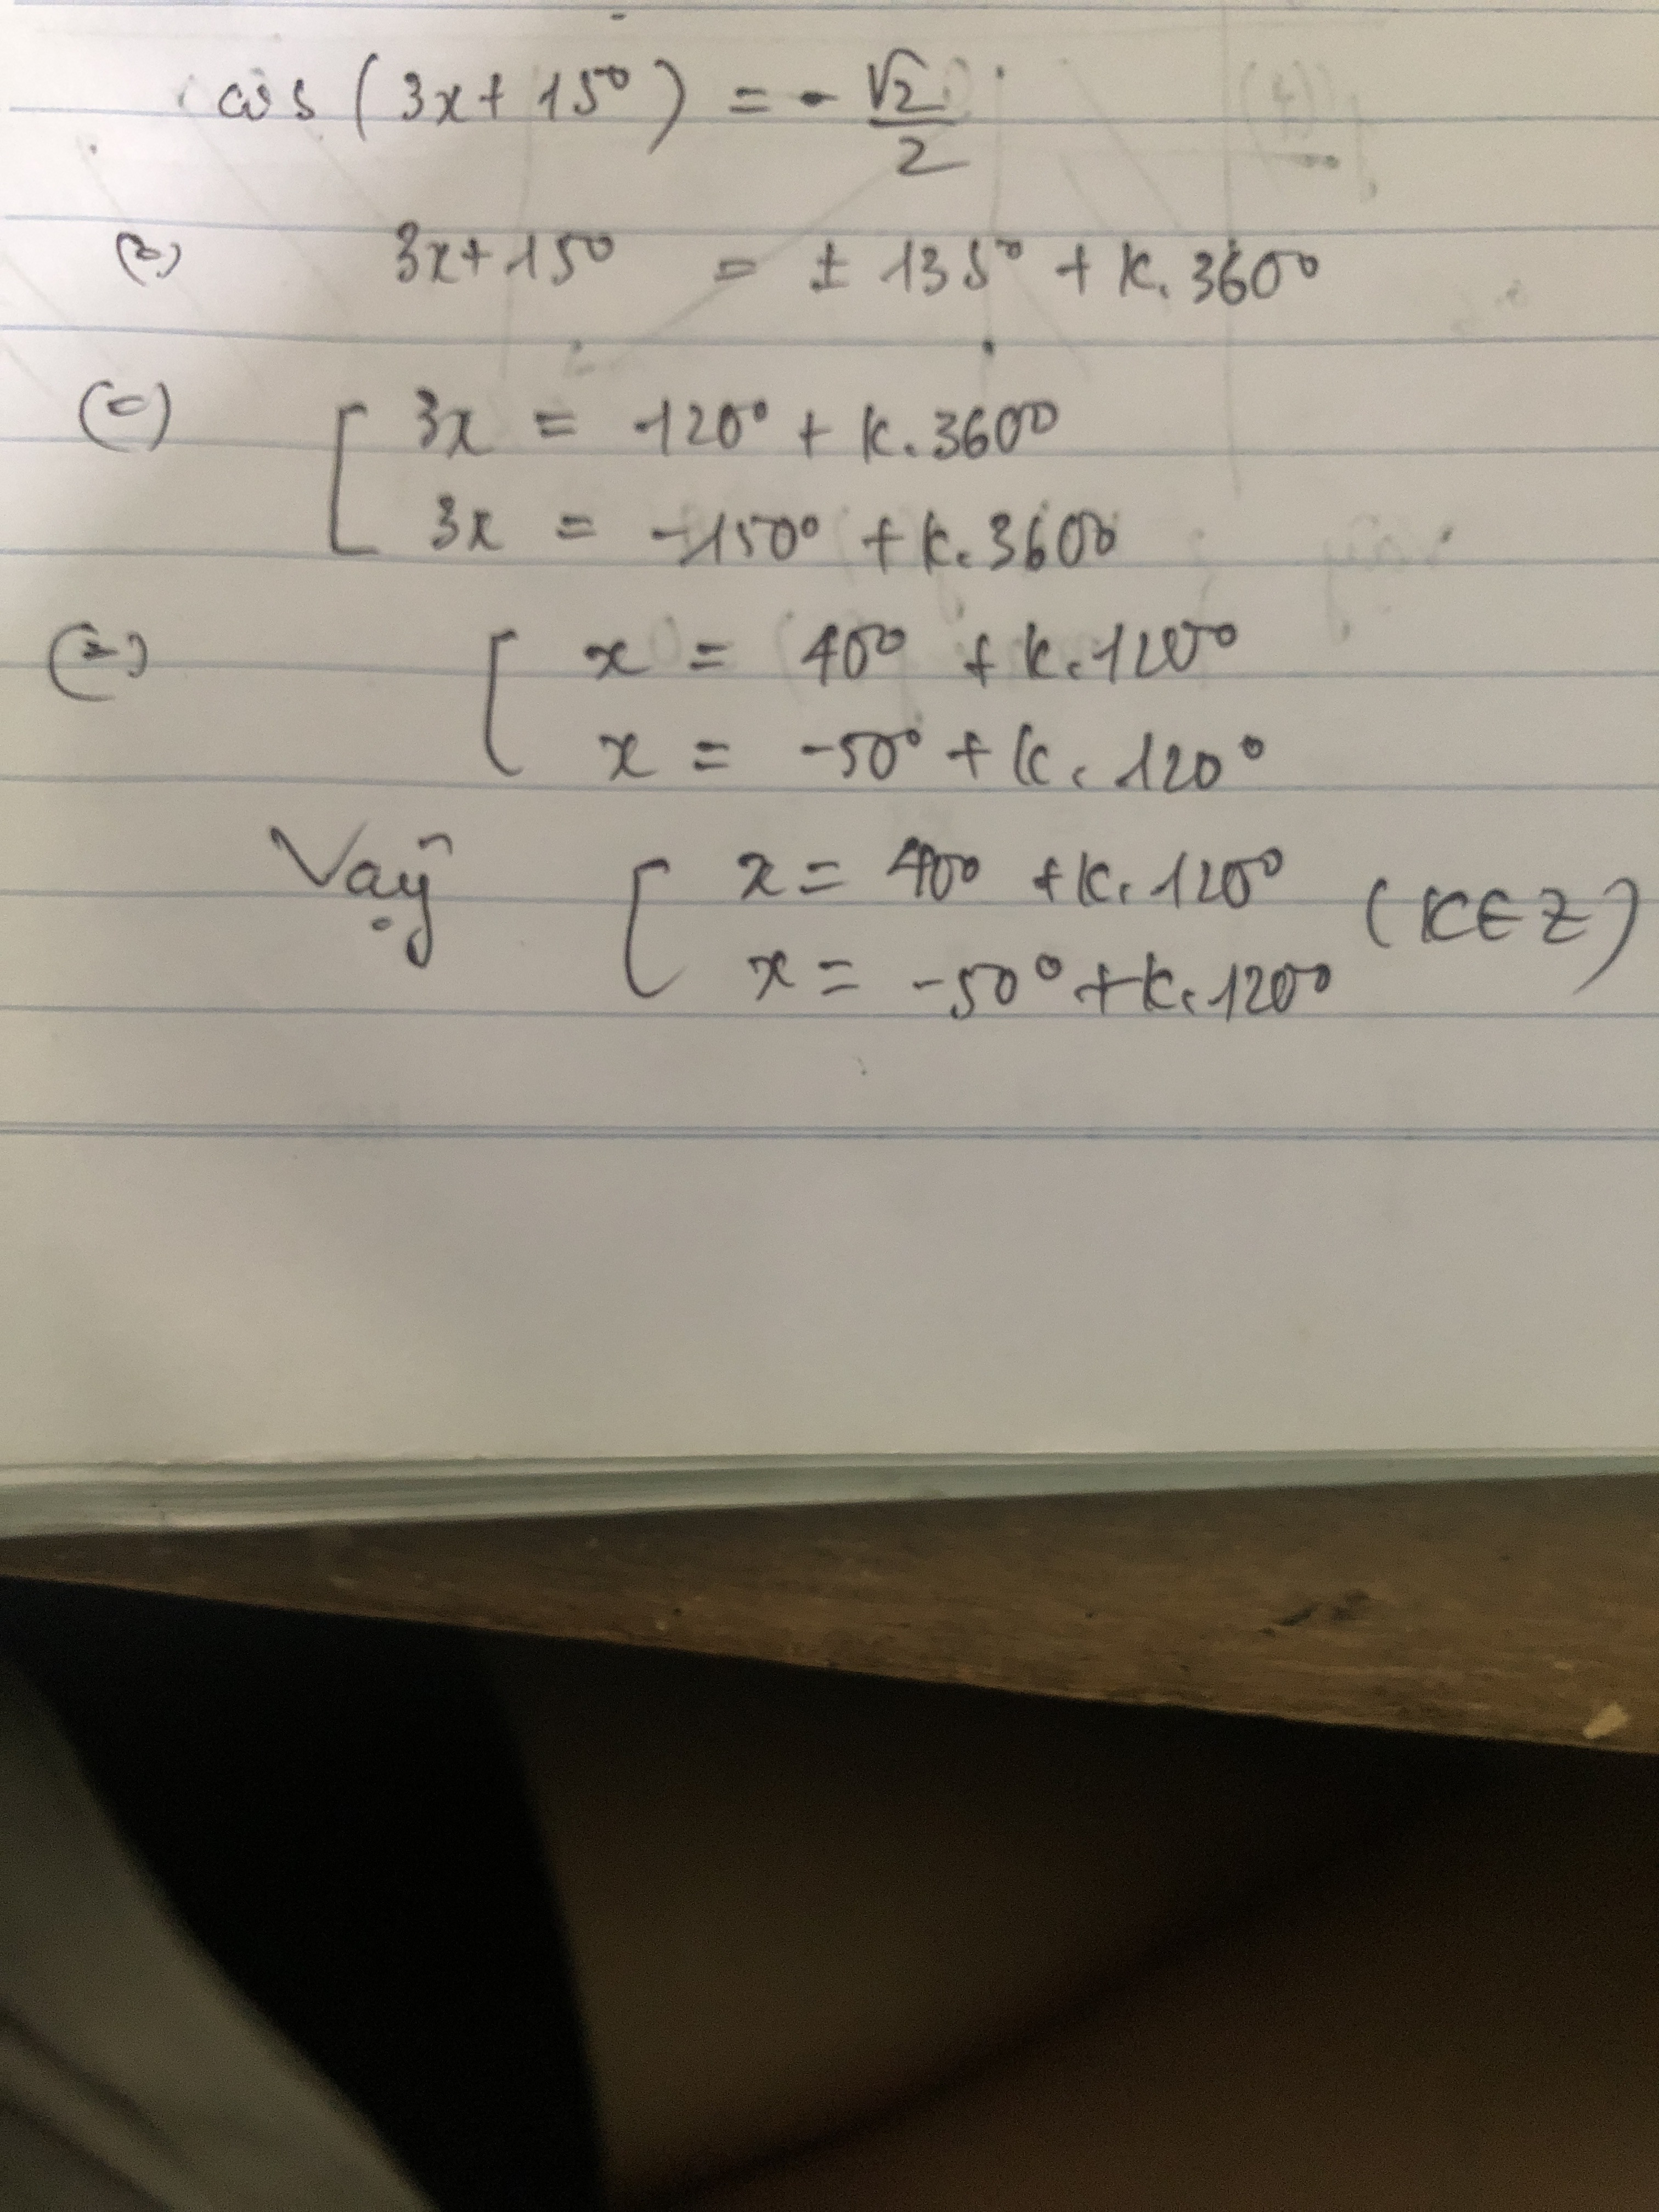 cos (3x + 15°) = - √2/2
(=) 3x + 15° = ± 135° + k. 360°
(=) [ 3x = 120° + k. 360°
3x = -150° + k. 360°
(=) [ x = 40° + k. 120°
x = -50° + k. 120°
Vậy [ x = 40° + k. 120° (K∈Z)
x = -50° + k. 120°